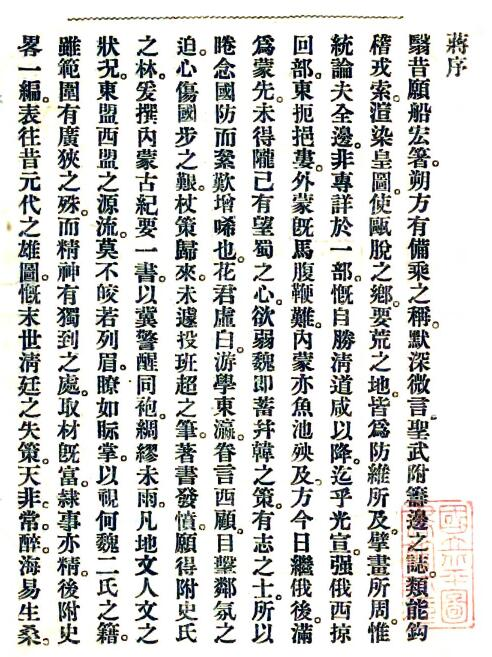 蔣序
翳昔願船宏箸。朔方有備乘之稱。默深微言。聖武附籌邊之誌。類能鈎
稽戎索。渲染皇圖。使甌脫之鄉。要荒之地。皆爲防維所及。擘畫所周。惟
統論夫全邊。非專詳於一部。慨自勝清道咸以降。迄乎光宣。强俄西掠
回部。東扼挹婁。外蒙旣馬腹鞭難。內蒙亦魚池殃及。方今日繼俄後。滿
爲蒙先。未得隴已有望蜀之心。欲弱魏卽蓄幷韓之策。有志之士。所以
睠念國防而絫歎增唏也。花君虛白。游學東瀛。眷言西顧。目擊鄰氛之
迫。心傷國步之艱。杖策歸來。未遽投班超之筆。著書發憤。願得附史氏
之林。爰撰內蒙古紀要一書。以冀警醒同袍。綢繆未雨。凡地文人文之
狀况。東盟西盟之源流。莫不皎若列眉。瞭如眎掌。以視何魏二氏之籍
雖範圍有廣狹之殊。而精神有獨到之處。取材旣富。隸事亦精。後附史
畧一編。表往昔元代之雄圖。慨末世清廷之失策。天非常醉。海易生桑。